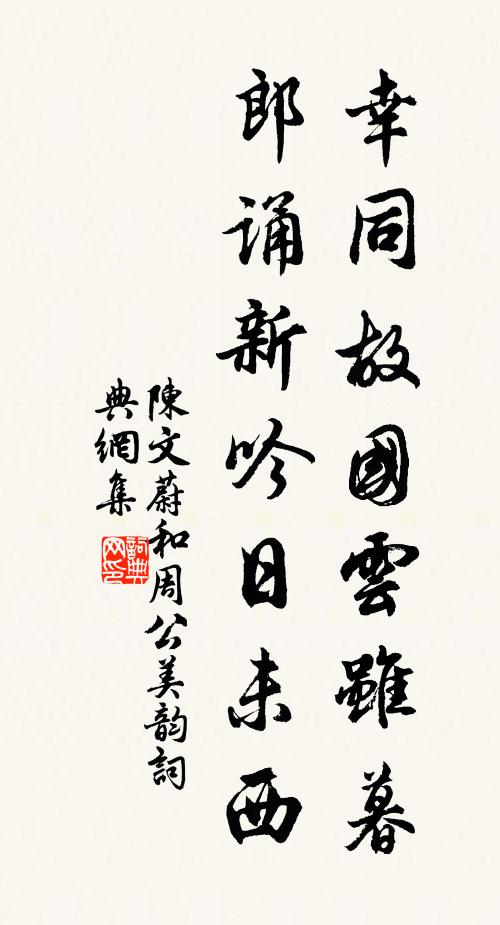 幸同故國雲雖暮
郎誦新吟日未西
陳文蔚和周公美韵詞
典網集
詞典網印